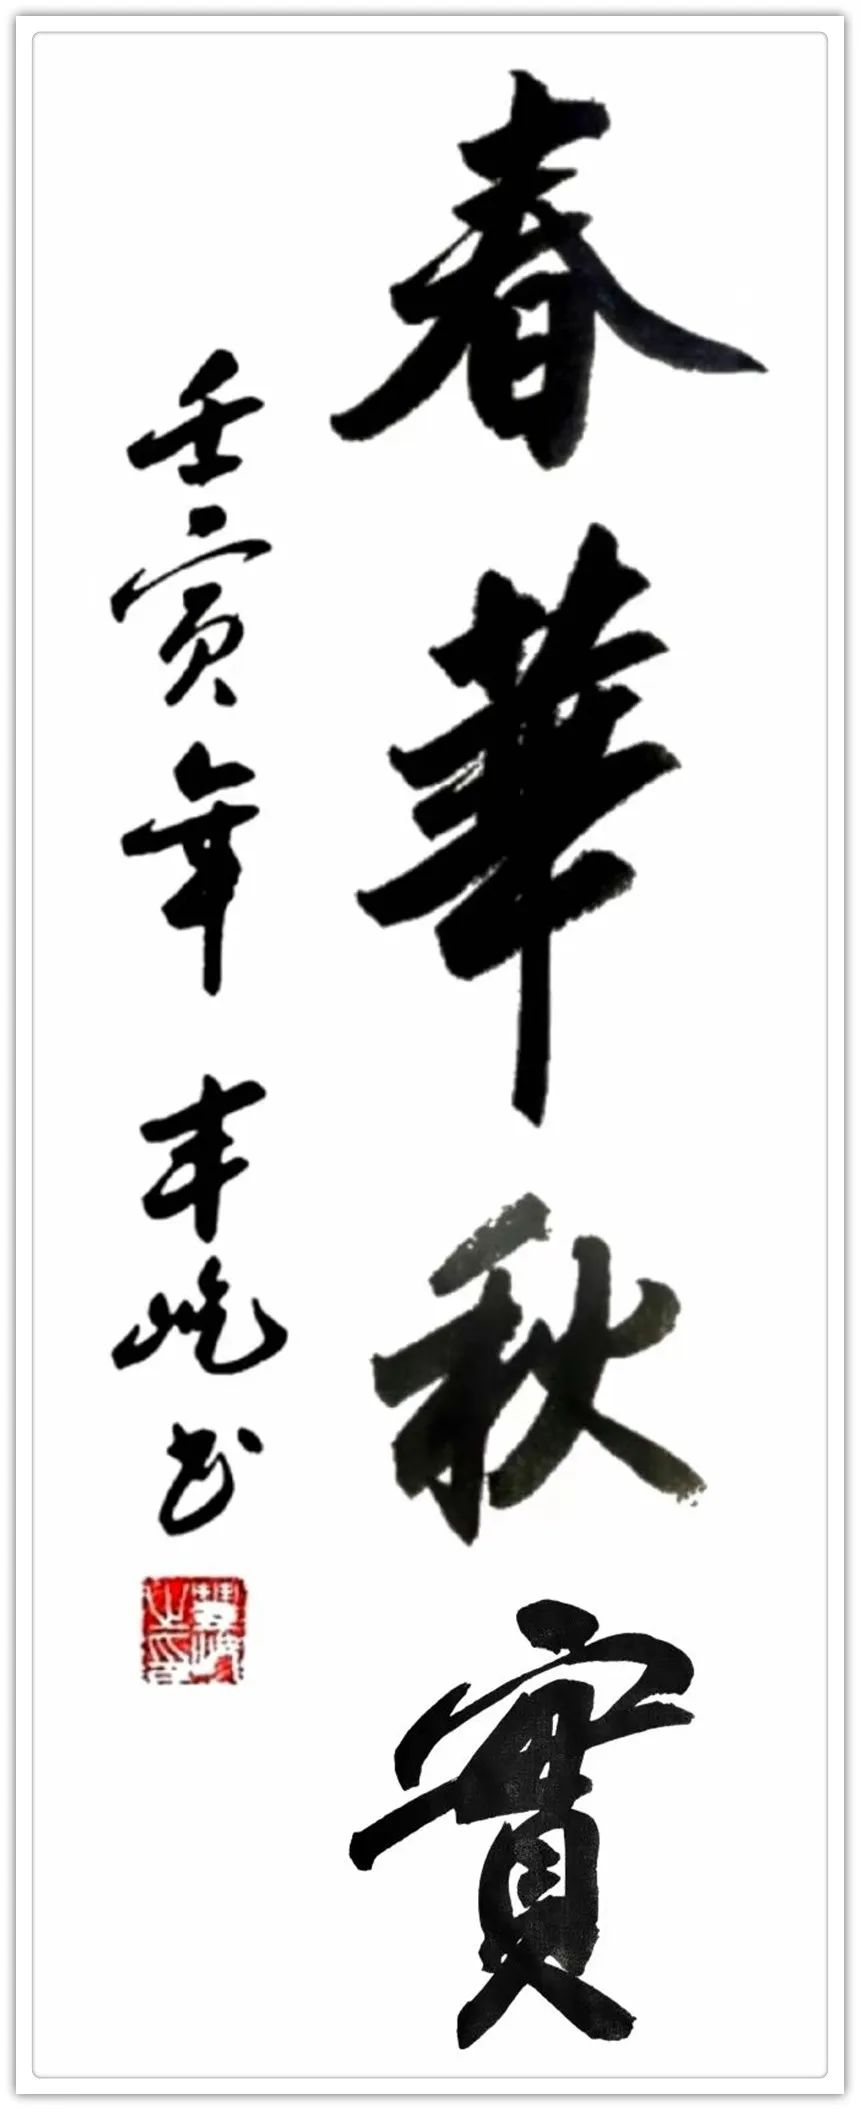 春華秋實
壬寅年 丰屹书